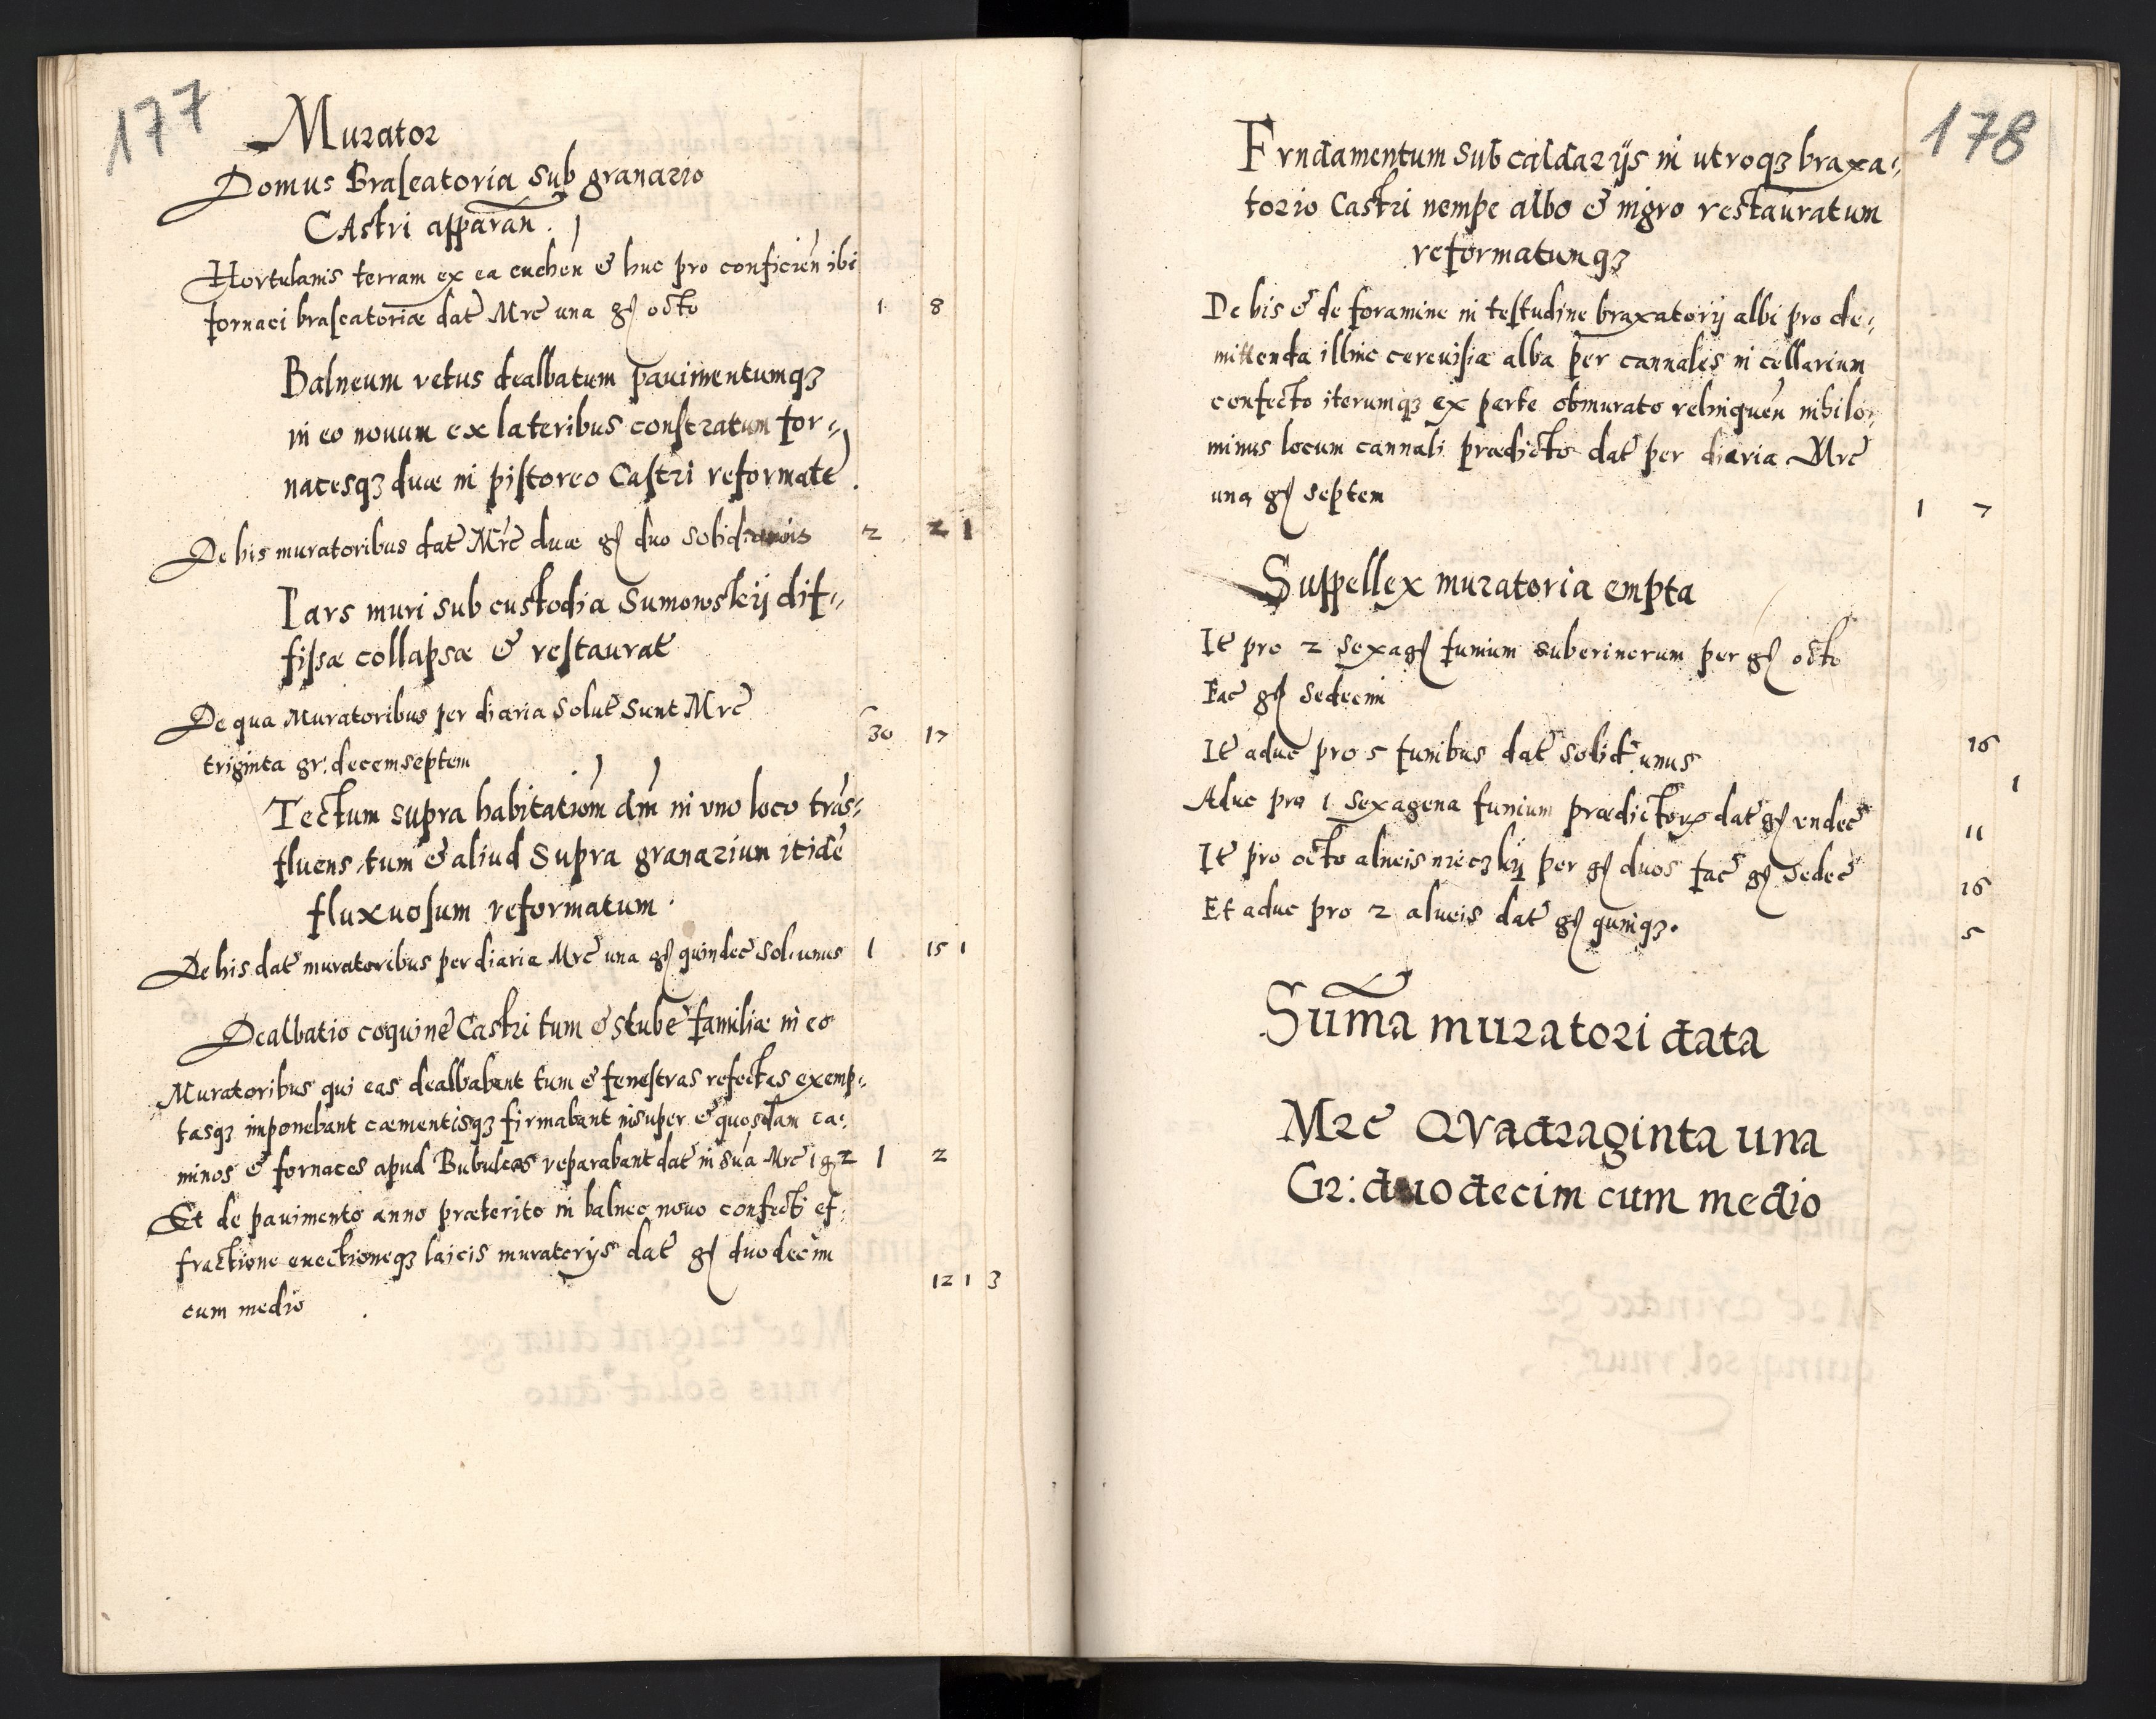 177
Murator
Domus Braseatoria sub granario
CAstri apparan̄.
Hortulanis terram ex ea euehen̄ & huc pro conficien̄ ibi
fornaci braseatoriæ dat̄ Mrc̄ una gſ octo 1 8
Balneum vetus dealbatum pauimentumqꝫ
in eo nouum ex lateribus constratum for,,
nacesqꝫ duæ in pistoreo Castri reformate.
De his muratoribus dat̄ Mrc̄ duæ gſ duo solid 2 2 1
Pars muri sub custodia Sumowskij dif,,
fissæ collapsæ & restaurat̄
De qua Muratoribus per diaria solut̄ sunt Mrc̄
triginta gr: decemseptem 30 17
Tectum supra habitatiom̄ dm̄ in vno loco trās,,
fluens tum & aliud supra granarium itidē
fluxuosum reformatum.
De his dat̄ muratoribus per diaria Mrc̄ una gſ quindec̄ sol: unus 1 15 1
Dealbatio coquinē Castri tum & stubē familiæ in eo
Muratoribus qui eas dealbabant tum & fenestras refectas exemp,,
tasqꝫ imponebant cæmentisqꝫ firmabant insuper & quosdam ca,,
minos & fornaces apud Bubulcos reparabant dat̄ in sūa Mrc̄ 1 gſ 2 1 2
Et de pauimento anno præterito in balneo nouo confecti ef,,
fractione euectioneqꝫ laicis muratorijs dat̄ gſ duodecim
cum medio 12 1 3
178
Frndamentum sub caldarijs in utroqꝫ braxa,,
torio Castri nempe albo & nigro restauratum
reformatumqꝫ
De his & de foramine in testudine braxatorij albi pro de,,
mittenda illinc cereuisia alba per cannales in cellarium
confecto iterumqꝫ ex parte obmurato relinquen̄ nihilo,,
minus locum cannali prædicto dat̄ per diaria Mrc̄
una gſ septem 1 7
Suppellex muratoria empta
It̄ pro 2 sexagſ funium suberinorum per gſ octo
Fac̄ gſ sedecim 16
It̄ aduc pro 5 funibus dat̄ solid: unus 1
Aduc pro 1 sexagena funium prædictoꝝ dat̄ gſ vndec̄ 11
It̄ pro octo alueis nieczkij per gſ duos fac̄ gſ sedec̄ 16
Et aduc pro 2 alueis dat̄ gſ quinqꝫ. 5
Sum̄a muratori data
Mrc̄ QVadraginta una
Gr: duodecim cum medio